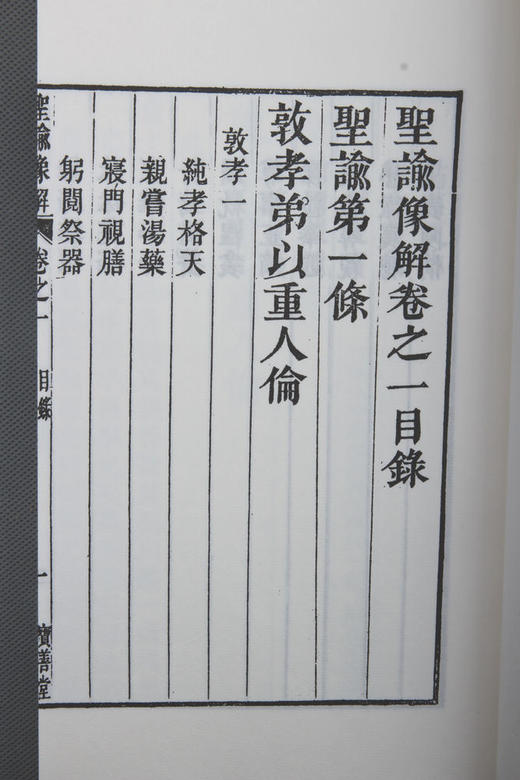 聖諭像解卷之一目錄
聖諭第一條
敦孝弟以重人倫
敦孝一
純孝格天
親嘗湯藥
寢門視膳
躬閱祭器
聖諭像解 卷之一 目錄 一 寶善堂